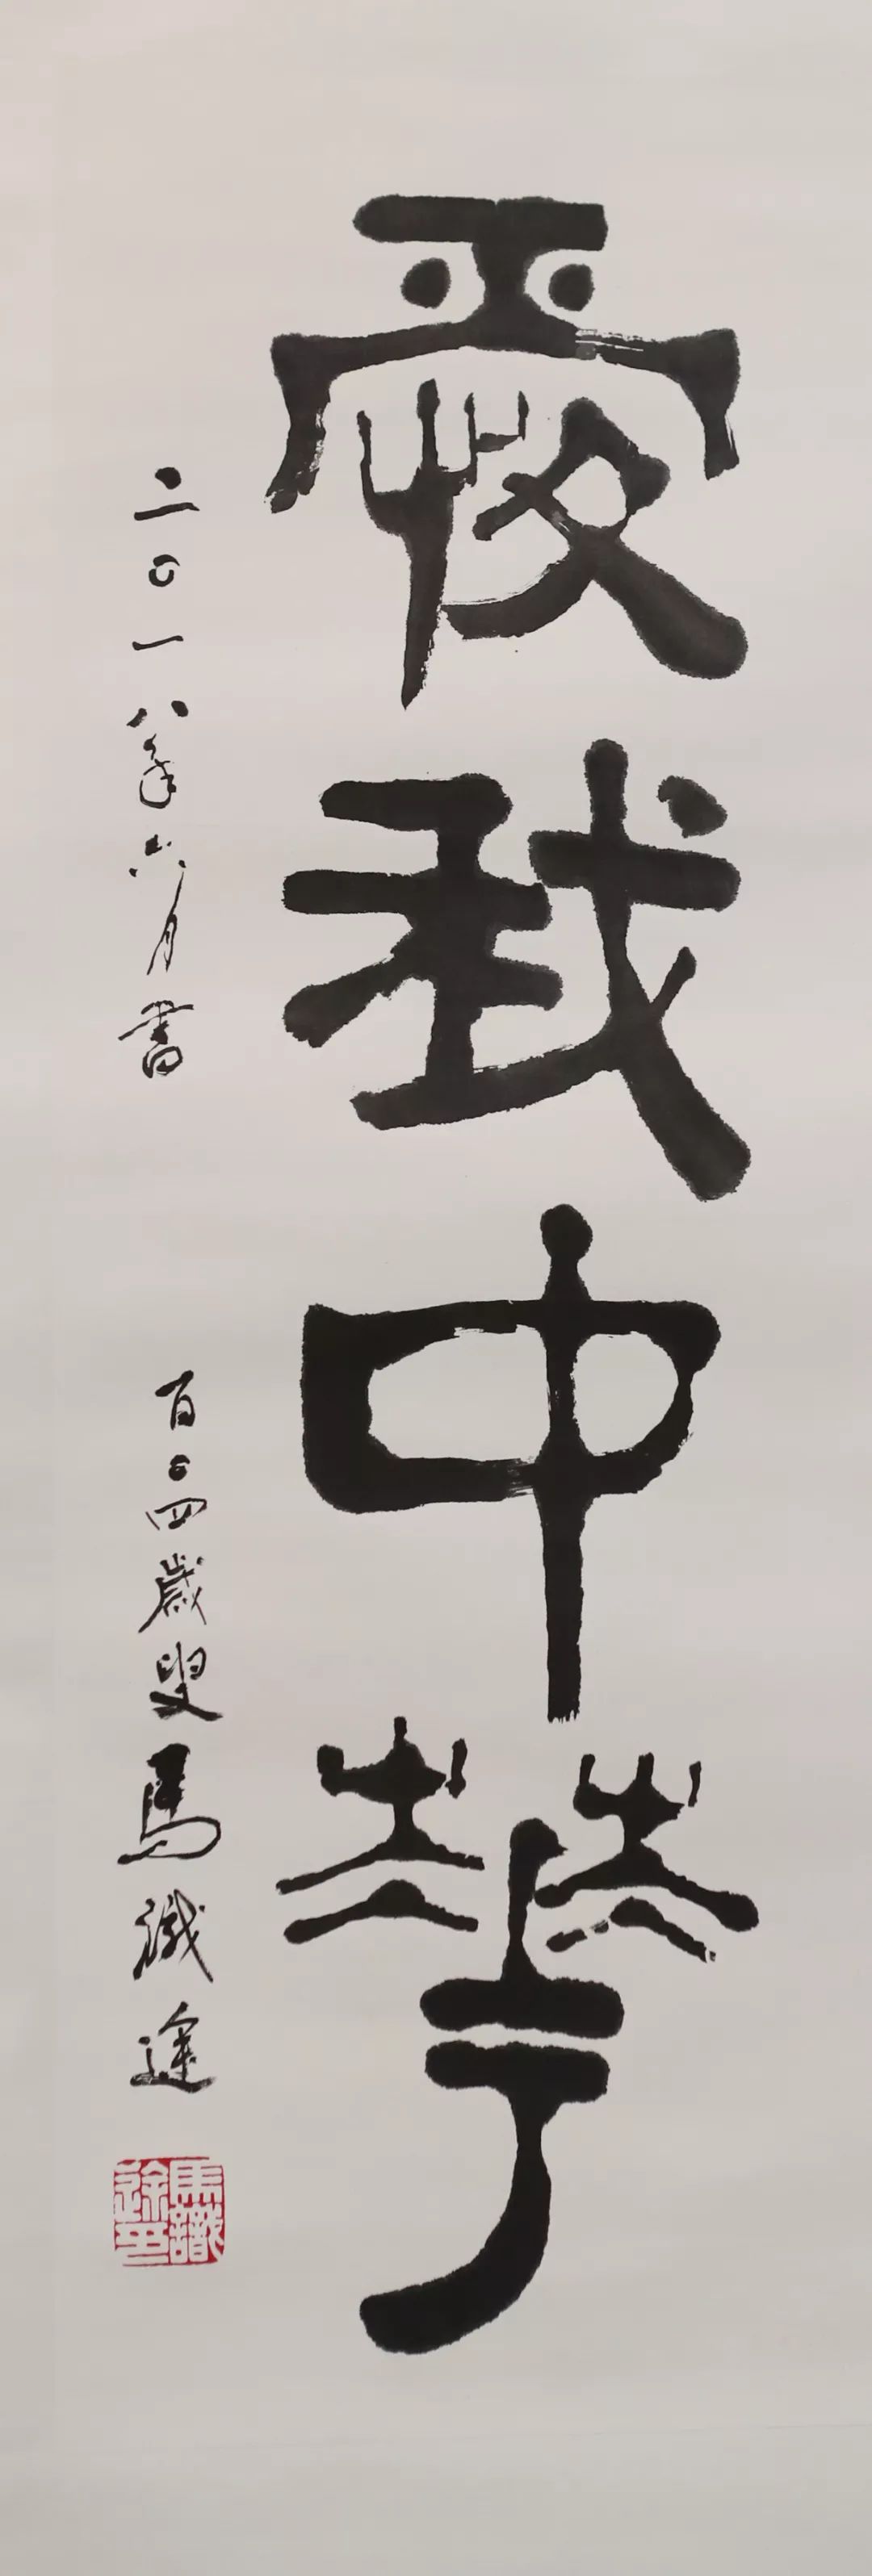 愛我中華
二〇一八年六月書
百〇四歲叟馬識途
馬識途印